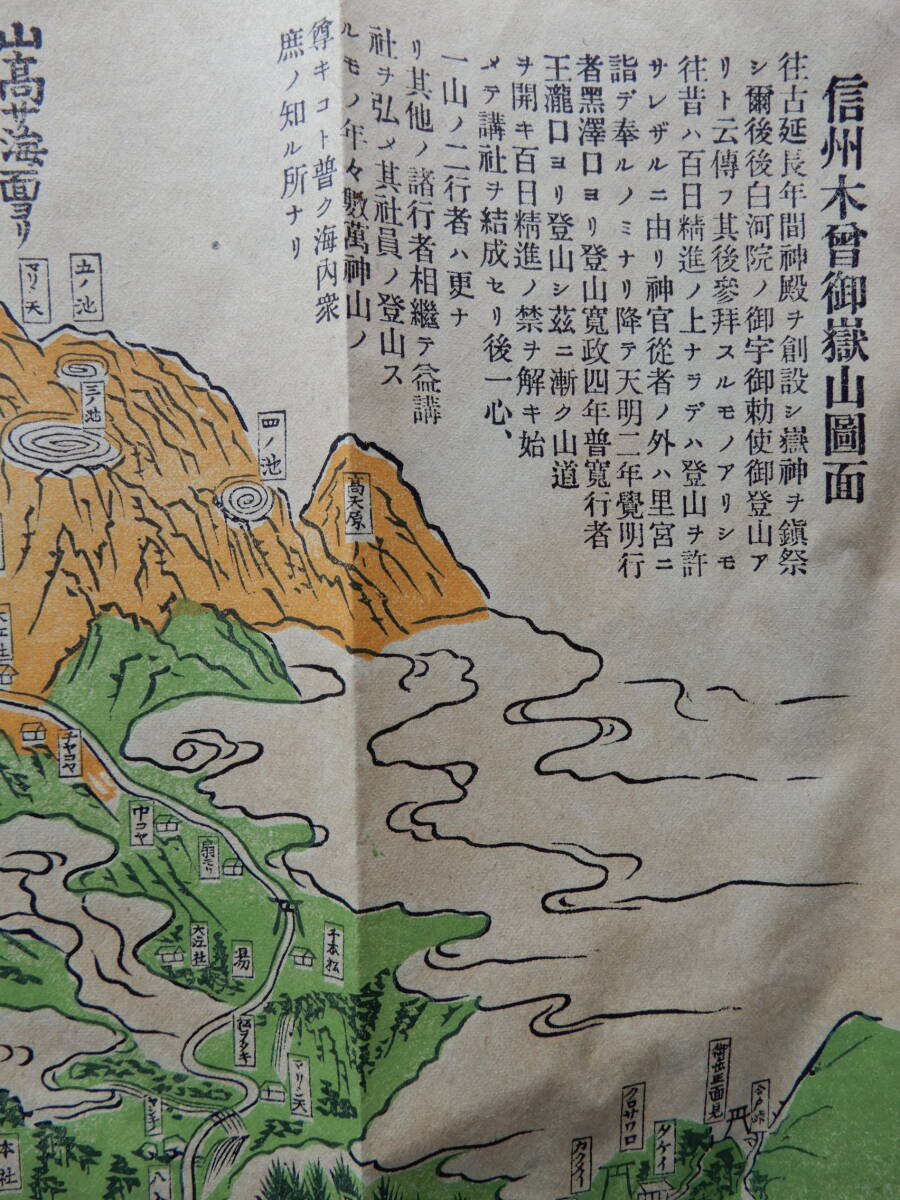 信州木曾御嶽山圖面
往古延長年間神殿ヲ創設シ嶽神ヲ鎭祭
シ爾後後白河院ノ御宇御勅使御登山ア
リト云傳フ其後參拜スルモノアリシモ
往昔ハ百日精進ノ上ナラデハ登山ヲ許
サレザルニ由リ神官從者ノ外ハ里宮ニ
詣デ奉ルノミナリ降テ天明二年覺明行
者黑澤口ヨリ登山寬政四年普寬行者
王瀧口ヨリ登山シ茲ニ漸ク山道
ヲ開キ百日精進ノ禁ヲ解キ始
メテ講社ヲ結成セリ後一心、
一山ノ二行者ハ更ナ
リ其他ノ諸行者相繼テ益講
社ヲ弘メ其社員ノ登山ス
ルモノ年々數萬神山ノ
尊キコト普ク海內衆
庶ノ知ル所ナリ
山高サ海面ヨリ
五ノ池
マリシ天
三ノ池
四ノ池
高天原
チヤコヤ
中コヤ
扇モリ
千本松
湯
大江社
松ヲタキ
マリシ天
御岳正面見
合戸峠
クロサワ口
タケイ
カクメイ
本社
八